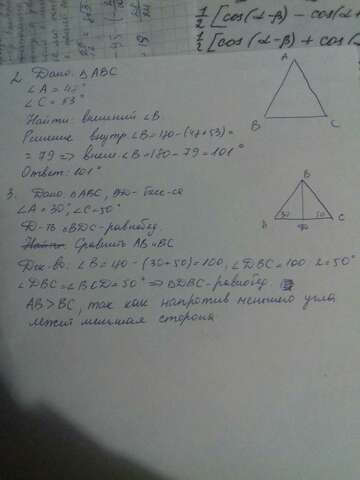 1/2 [cos(α-β) - cos(α+
1/2 [cos(α-β) + cos(
2. Дано: ΔABC
∠A = 48°
∠C = 53°
Найти: внешний ∠B.
Решение внутр. ∠B = 180-(48+53)=
= 79 => внеш ∠B = 180-79 = 101°
Ответ: 101°
A
B
C
3. Дано: ΔABC, BD - бис-са
∠A = 30°, ∠C = 50°
Д-ть ΔBDC - равнобед.
Сравнить AB и BC
Док-во: ∠B = 180-(30+50)=100, ∠DBC = 100:2=50°
∠DBC = ∠BCD = 50° => ΔDBC - равнобед.
AB > BC, так как напротив меньшего угла
лежит меньшая сторона
B
30
50
C